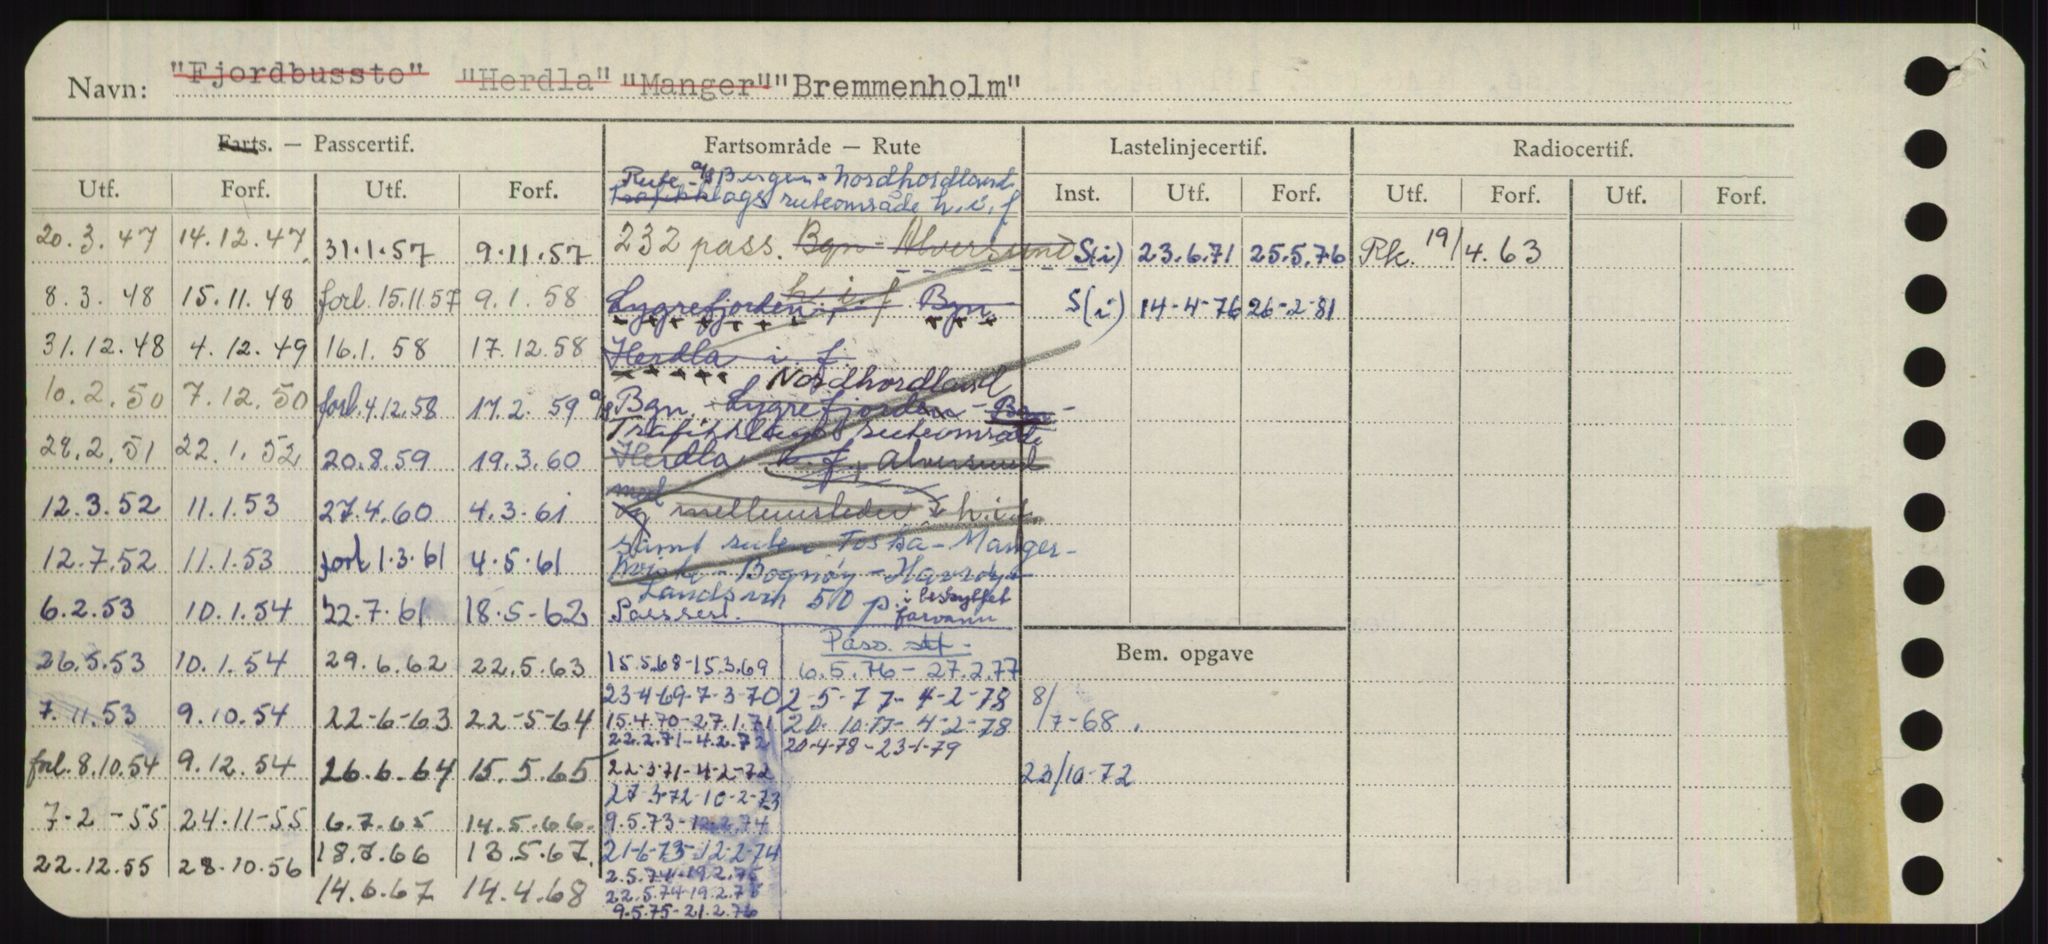 Navn: "Fjordbussto" "Herdla" "Manger" "Bremmenholm"
Farts. — Passcertif. Fartsområde — Rute Lastelinjecertif. Radiocertif.
Utf. Forf. Utf. Forf. Rute a/s Bergen - Nordhordland Inst. Utf. Forf. Utf. Forf. Utf. Forf.
Trafikklags ruteområde h.i.f
20.3.47 14.12.47 31.1.57 9.11.57 232 pass. Bgn - Alversund S(i) 23.6.71 25.5.76 Rk. 19/4.63
8.3.48 15.11.48 forl. 15.11.57 9.1.58 Lygrefjorden h.i.f Bgn S(i) 14-4-76 26-2-81
31.12.48 4.12.49 16.1.58 17.12.58 Herdla i. f.
Nordhordland
10.2.50 7.12.50 forl. 4.12.58 17.2.59 a/s Bgn. Lygrefjorden - Bgn -
Trafikklags ruteområde
28.2.51 22.1.52 20.8.59 19.3.60 Herdla h. f. Alversund
med
12.3.52 11.1.53 27.4.60 4.3.61 og mellemsteder h.i.f.
samt ruten Toska - Manger -
12.7.52 11.1.53 forl 1.3.61 4.5.61 - Bognøy - Havrøy
Landsvik 50 p. i beskyttet
6.2.53 10.1.54 22.7.61 18.5-62 Passsert. farvann
Pass. stf -
26.5.53 10.1.54 29.6.62 22.5.63 15.5.68-15.3.69 6.5.76 - 27.2.77 Bem. opgave
23-4-69-7-3-70 2-5-77- 4-2-78 8/7-68.
7.11.53 9.10.54 22-6-63 22-5-64 15.4.70-27.1.71 20-10-77- 4-2-78
22.2.71-4.2.72 20-4-78-23-1-79
forl. 8.10.54 9.12.54 26.6.64 15.5.65 22-3-71-4-2-72 23/10-72
27-3-72-10-2-73
7-2-55 24-11-55 6.7.65 14.5.66. 9.5.73-12.2.74
22.12.55 28-10.56 18.7.66 13.5.67. 21-6-73-12-2-74
2.5.74-19.2.75
14.6.67 14.4.68 22.5.74-19.2.75
9.5.75-21.2.76